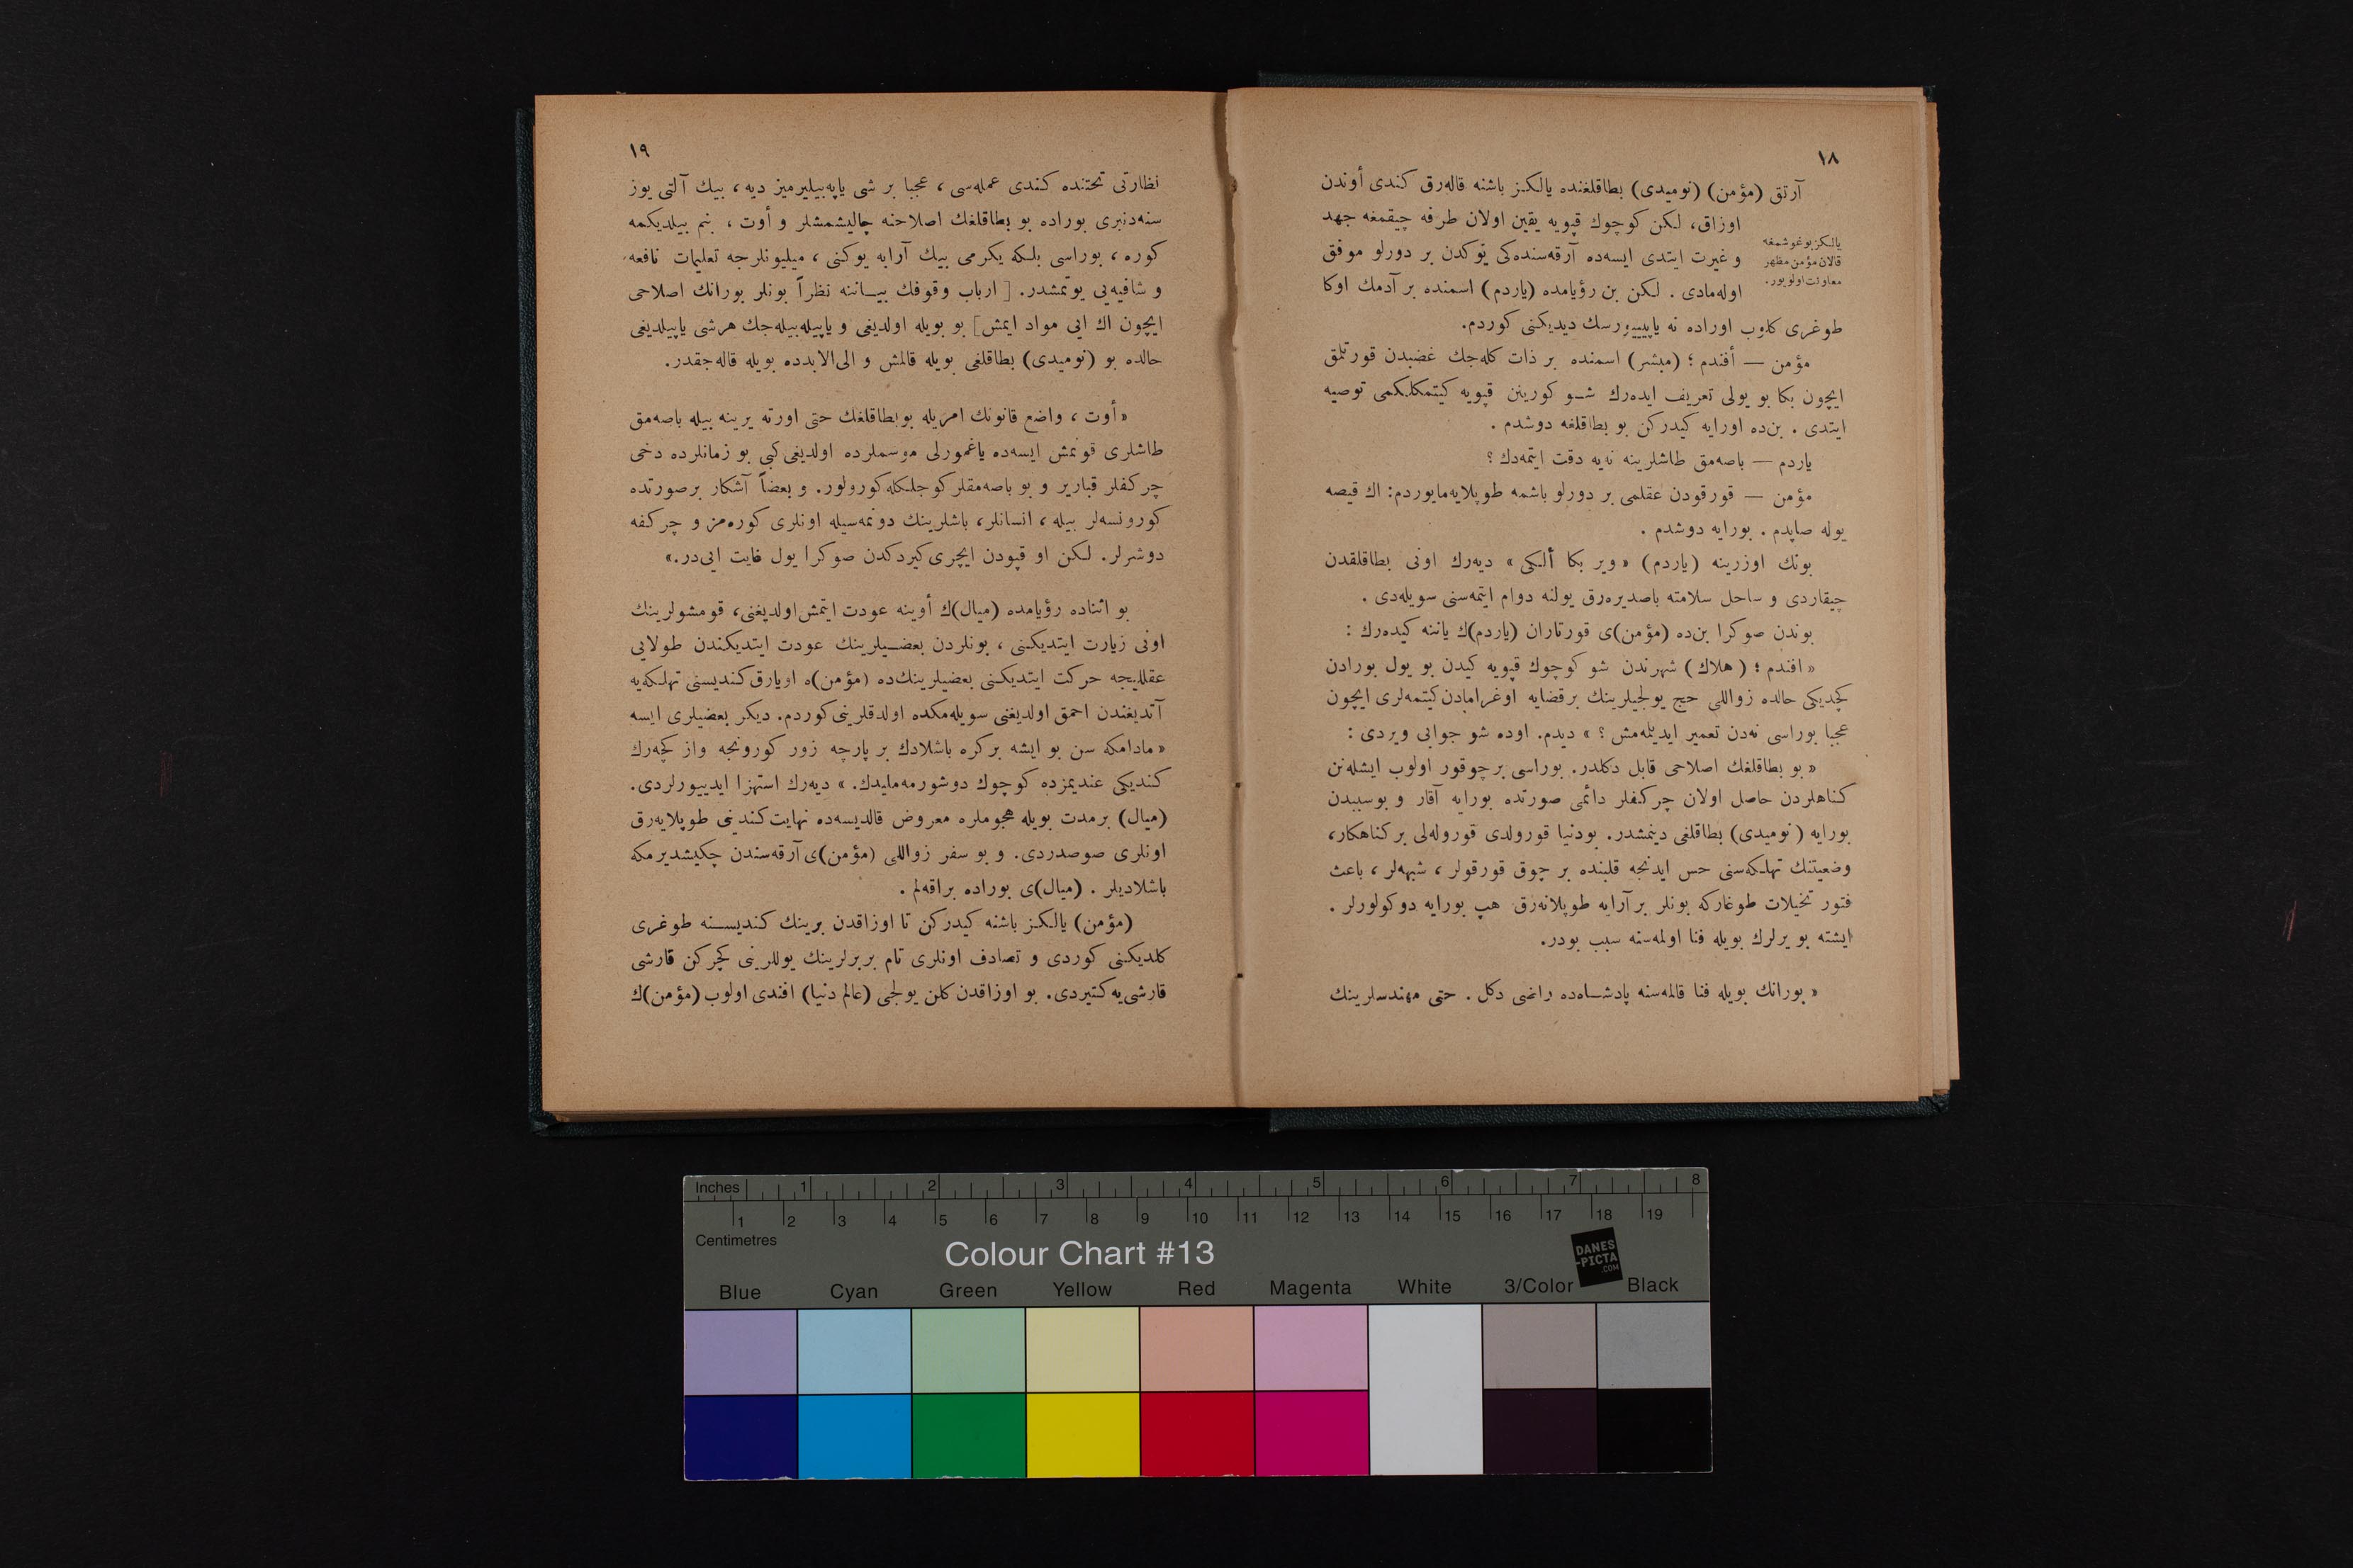 ١٨
آرتق (مؤمن) (نوميدى) بطاقلغنده يالكز باشنه قاله‌رق كندى أوندن
اوزاق، لكن كوچوك قپويه يقين اولان طرفه چيقمغه جهد
و غيرت ايتدى ايسه‌ده آرقه‌سنده‌كى يوكدن بر دورلو موفق
اوله‌مادى . لكن بن رؤيامده (ياردم) اسمنده بر آدمك اوكا
يالكز بوغوشمغه
قالان مؤمن مظهر
معاونت اولويور.
طوغرى كلوب اوراده نه ياپييورسك ديديكنى كوردم.
مؤمن — أفندم ؛ (مبشر) اسمنده بر ذات كله‌جك غضبدن قورتلمق
ايچون بكا بو يولى تعريف ايده‌رك شو كورينن قپويه كيتمكلكمى توصيه
ايتدى . بن‌ده اورايه كيدركن بو بطاقلغه دوشدم .
ياردم — باصه‌مق طاشلرينه نه‌يه دقت ايتمه‌دك ؟
مؤمن — قورقودن عقلمى بر دورلو باشمه طوپلايه‌مايوردم: اك قيصه
يوله صاپدم . بورايه دوشدم .
بونك اوزرينه (ياردم) « وير بكا ألكى » ديه‌رك اونى بطاقلقدن
چيقاردى و ساحل سلامته باصديره‌رق يولنه دوام ايتمه‌سنى سويله‌دى .
بوندن صوكرا بن‌ده (مؤمن)ى قورتاران (ياردم)ك ياننه كيده‌رك :
« افندم ؛ (هلاك) شهرندن شو كوچوك قپويه كيدن بو يول بورادن
كچديكى حالده زواللى حج يولجيلرينك برقضايه اوغرامادن كيتمه‌لرى ايچون
عجبا بوراسى نه‌دن تعمير ايديلمه‌مش ؟ » ديدم. اوده شو جوابى ويردى :
« بو بطاقلغك اصلاحى قابل دكلدر. بوراسى برچوقور اولوب ايشله‌نن
كناهلردن حاصل اولان چركفلر دائمى صورتده بورايه آقار و بوسببدن
بورايه (نوميدى) بطاقلغى دينمشدر. بودنيا قورولدى قوروله‌لى بركناهكار،
وضعيتنك تهلكه‌سنى حس ايدنجه قلبنده بر چوق قورقولر ، شبهه‌لر ، باعث
فتور تخيلات طوغاركه بونلر برآرايه طوپلانه‌رق هپ بورايه دوكولورلر .
ايشته بو يرلرك بويله فنا اولمه‌سنه سبب بودر.
« بورانك بويله فنا قالمه‌سنه پادشاه‌ده راضى دكل . حتى مهندسلرينك
١٩
نظارتى تحتنده كندى عمله‌سى ، عجبا بر شى ياپه‌بيليرميز ديه ، بيك آلتى يوز
سنه‌دنبرى بوراده بو بطاقلغك اصلاحنه چاليشمشلر و أوت ، بنم بيلديكمه
كوره ، بوراسى بلكه يكرمى بيك آرابه يوكنى ، ميليونلرجه تعليمات نافعه
و شافيه‌يى يوتمشدر. [ ارباب وقوفك بيـاننه نظراً بونلر بورانك اصلاحى
ايچون اك ايى مواد ايمش] بو بويله اولديغى و ياپيله‌بيله‌جك هرشى ياپيلديغى
حالده بو (نوميدى) بطاقلغى بويله قالمش و الى‌الابدده بويله قاله‌جقدر.
« أوت ، واضع قانونك امريله بوبطاقلغك حتى اورته يرينه بيله باصه‌مق
طاشلرى قونمش ايسه‌ده ياغمورلى موسملرده اولديغى كبى بو زمانلرده دخى
چركفلر قبارير و بو باصه‌مقلر كوجلكله كورولور. و بعضاً آشكار برصورتده
كورونسه‌لر بيله ، انسانلر، باشلرينك دونمه‌سيله اونلرى كوره‌مز و چركفه
دوشرلر. لكن او قپودن ايچرى كيردكدن صوكرا يول غايت ايى‌در.»
بو اثناده رؤيامده (ميال)ك أوينه عودت ايتمش اولديغنى، قومشولرينك
اونى زيارت ايتديكنى ، بونلردن بعضـيلرينك عودت ايتديكندن طولايى
عقلليجه حركت ايتديكنى بعضيلرينك‌ده (مؤمن)ه اويارق كنديسنى تهلكه‌يه
آتديغندن احمق اولديغنى سويله‌مكده اولدقلرينى كوردم. ديكر بعضيلرى ايسه
« مادامكه سن بو ايشه بركره باشلادك بر پارچه زور كورونجه واز كچه‌رك
كنديكى عنديمزده كوچوك دوشورمه‌مليدك. » ديه‌رك استهزا ايدييورلردى.
(ميال) برمدت بويله هجوملره معروض قالديسه‌ده نهايت كندينى طوپلايه‌رق
اونلرى صوصدردى. و بو سفر زواللى (مؤمن)ى آرقه‌سندن چكيشديرمكه
باشلاديلر . (ميال)ى بوراده براقه‌لم .
(مؤمن) يالكز باشنه كيدركن تا اوزاقدن برينك كنديسـنه طوغرى
كلديكنى كوردى و تصادف اونلرى تام بربرلرينك يوللرينى كچركن قارشى
قارشى‌يه كتيردى. بو اوزاقدن كلن يولجى (عالم دنيا) افندى اولوب (مؤمن)ك
Inches 1 2 3 4 5 6 7 8
1 2 3 4 5 6 7 8 9 10 11 12 13 14 15 16 17 18 19
Centimetres
Colour Chart #13
DANES
-PICTA
.COM
Blue Cyan Green Yellow Red Magenta White 3/Color Black